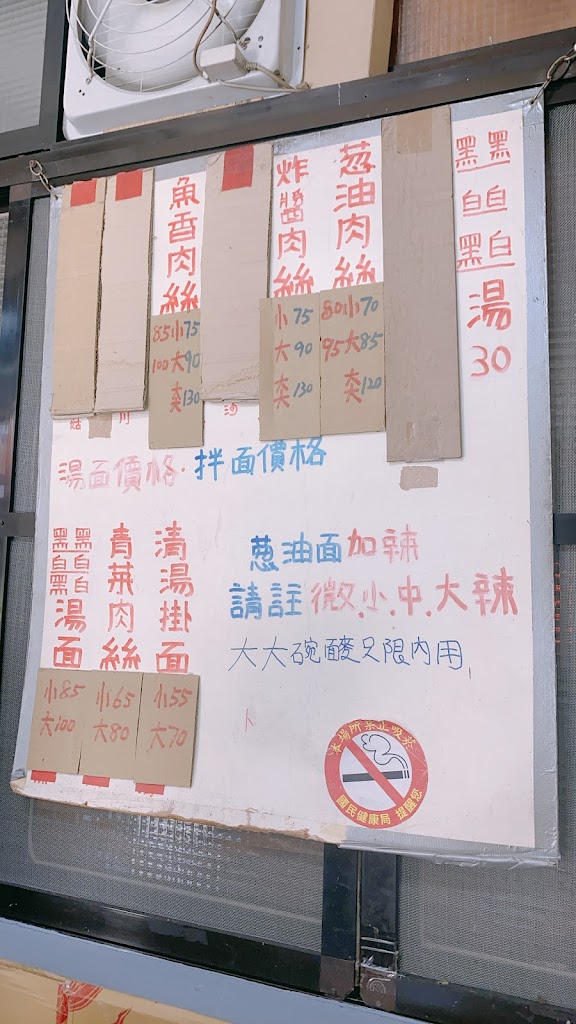 黑黑
白白
黑白
湯
30
葱油肉絲
80小70
95大85
夾120
炸醬肉絲
小75
大90
夾130
魚香肉絲
85小75
100大90
夾130
湯面價格·拌面價格
清湯掛面
小55
大70
青菜肉絲
小65
大80
黑黑
白白
黑白
湯面
小85
大100
葱油面加辣
請註微.小.中.大辣
大大碗酸只限內用
本場所禁止吸菸
國民健康局 提醒您